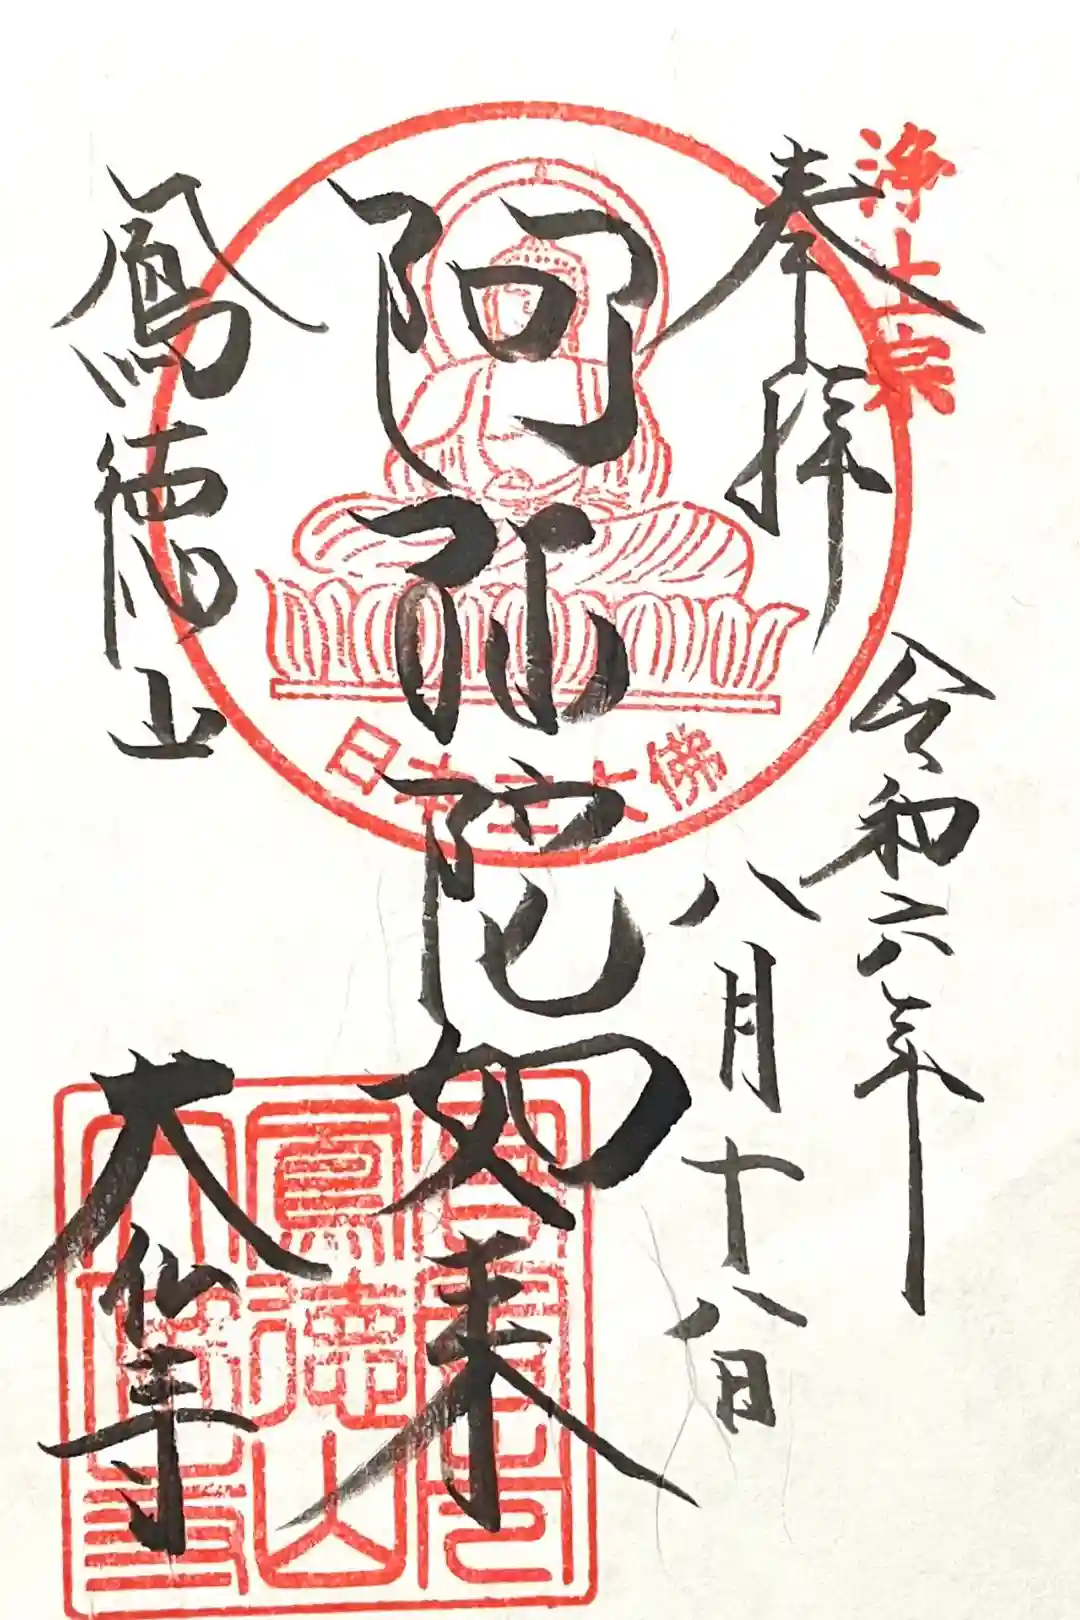 浄土宗
奉拝
令和六年
八月十八日
阿弥陀如来
日本三大佛
鳳徳山
大仏寺